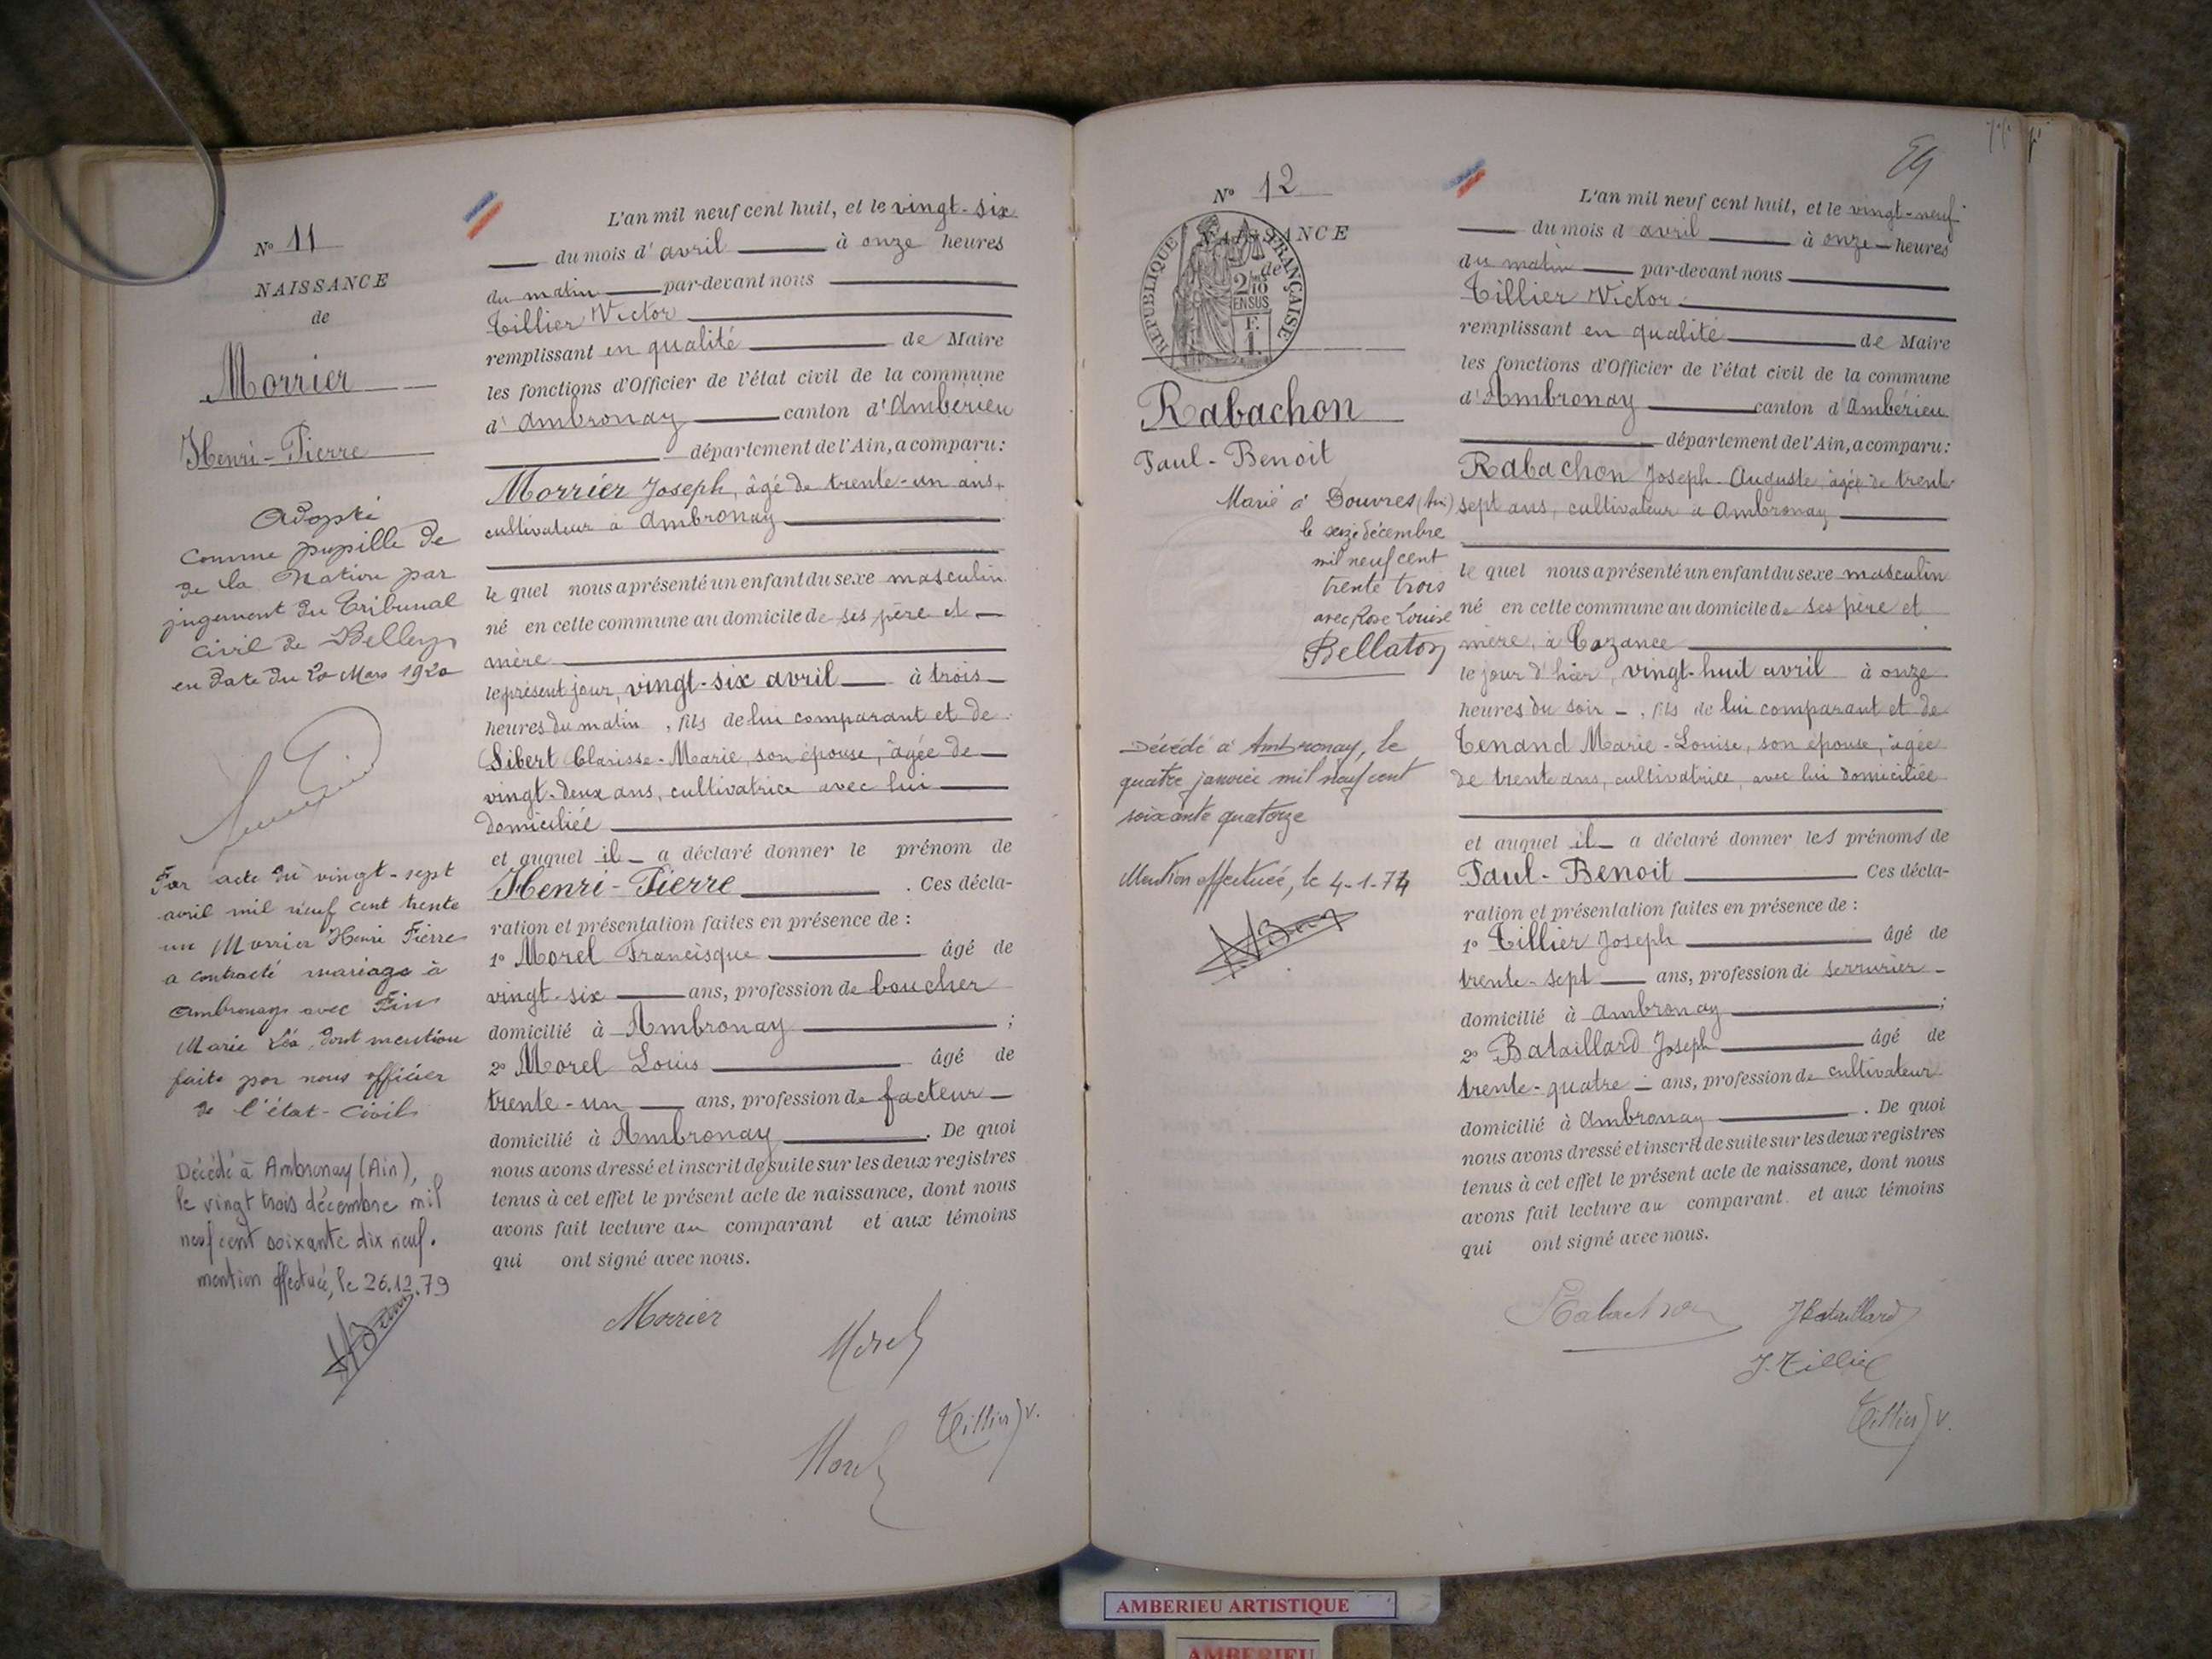 N° 11
NAISSANCE
de
Morrier
Henri-Pierre
Adopté
comme pupille de
de la Nation par
jugement du Tribunal
civil de Belley
en date du 20 Mars 1920
Par acte du vingt-sept
avril mil neuf cent trente
un Morrier Henri Pierre
a contracté mariage à
Ambronay avec
Marie Léa, dont mention
faite par nous officier
de l'état-civil
Décédé à Ambronay (Ain),
le vingt trois décembre mil
neuf cent soixante dix neuf.
mention effectuée, le 26.12.79
L'an mil neuf cent huit, et le vingt-six
du mois d'avril à onze heures
du matin par-devant nous
Tillier Victor
remplissant en qualité de Maire
les fonctions d'Officier de l'état civil de la commune
d'Ambronay canton d'Ambérieu
département de l'Ain, a comparu:
Morrier Joseph, âgé de trente-un ans,
cultivateur à Ambronay
le quel nous a présenté un enfant du sexe masculin
né en cette commune au domicile de ses père et
mère
le présent jour, vingt-six avril à trois
heures du matin, fils de lui comparant et de
Sibert Clarisse-Marie, son épouse, âgée de
vingt-deux ans, cultivatrice avec lui
domiciliée
et auquel il a déclaré donner le prénom de
Henri-Pierre. Ces décla-
ration et présentation faites en présence de :
1° Morel Francisque âgé de
vingt-six ans, profession de boucher
domicilié à Ambronay ;
2° Morel Louis âgé de
trente-un ans, profession de facteur
domicilié à Ambronay. De quoi
nous avons dressé et inscrit de suite sur les deux registres
tenus à cet effet le présent acte de naissance, dont nous
avons fait lecture au comparant et aux témoins
qui ont signé avec nous.
Morrier
Morel
Tillier V.
Morel
59
N° 12
NAISSANCE
de
REPUBLIQUE FRANÇAISE
2/10
EN SUS
F.
1.
Rabachon
Paul-Benoit
Marié à Douvres (Ain)
le seize décembre
mil neuf cent
trente trois
avec Rose Louise
Bellaton
Décédé à Ambronay, le
quatre janvier mil neuf cent
soixante quatorze
Mention effectuée, le 4-1-74
L'an mil neuf cent huit, et le vingt-neuf
du mois d'avril à onze heures
du matin par-devant nous
Tillier Victor
remplissant en qualité de Maire
les fonctions d'Officier de l'état civil de la commune
d'Ambronay canton d'Ambérieu
département de l'Ain, a comparu:
Rabachon Joseph-Auguste, âgé de trente
sept ans, cultivateur à Ambronay
le quel nous a présenté un enfant du sexe masculin
né en cette commune au domicile de ses père et
mère, à Cozance
le jour d'hier, vingt-huit avril à onze
heures du soir, fils de lui comparant et de
Tenand Marie-Louise, son épouse, âgée
de trente ans, cultivatrice, avec lui domiciliée
et auquel il a déclaré donner les prénoms de
Paul-Benoit Ces décla-
ration et présentation faites en présence de :
1° Tillier Joseph âgé de
trente-sept ans, profession de serrurier
domicilié à Ambronay ;
2° Bataillard Joseph âgé de
trente-quatre ans, profession de cultivateur
domicilié à Ambronay. De quoi
nous avons dressé et inscrit de suite sur les deux registres
tenus à cet effet le présent acte de naissance, dont nous
avons fait lecture au comparant et aux témoins
qui ont signé avec nous.
Rabachon
J Bataillard
J. Tillier
Tillier V.
AMBERIEU ARTISTIQUE
AMBERIEU